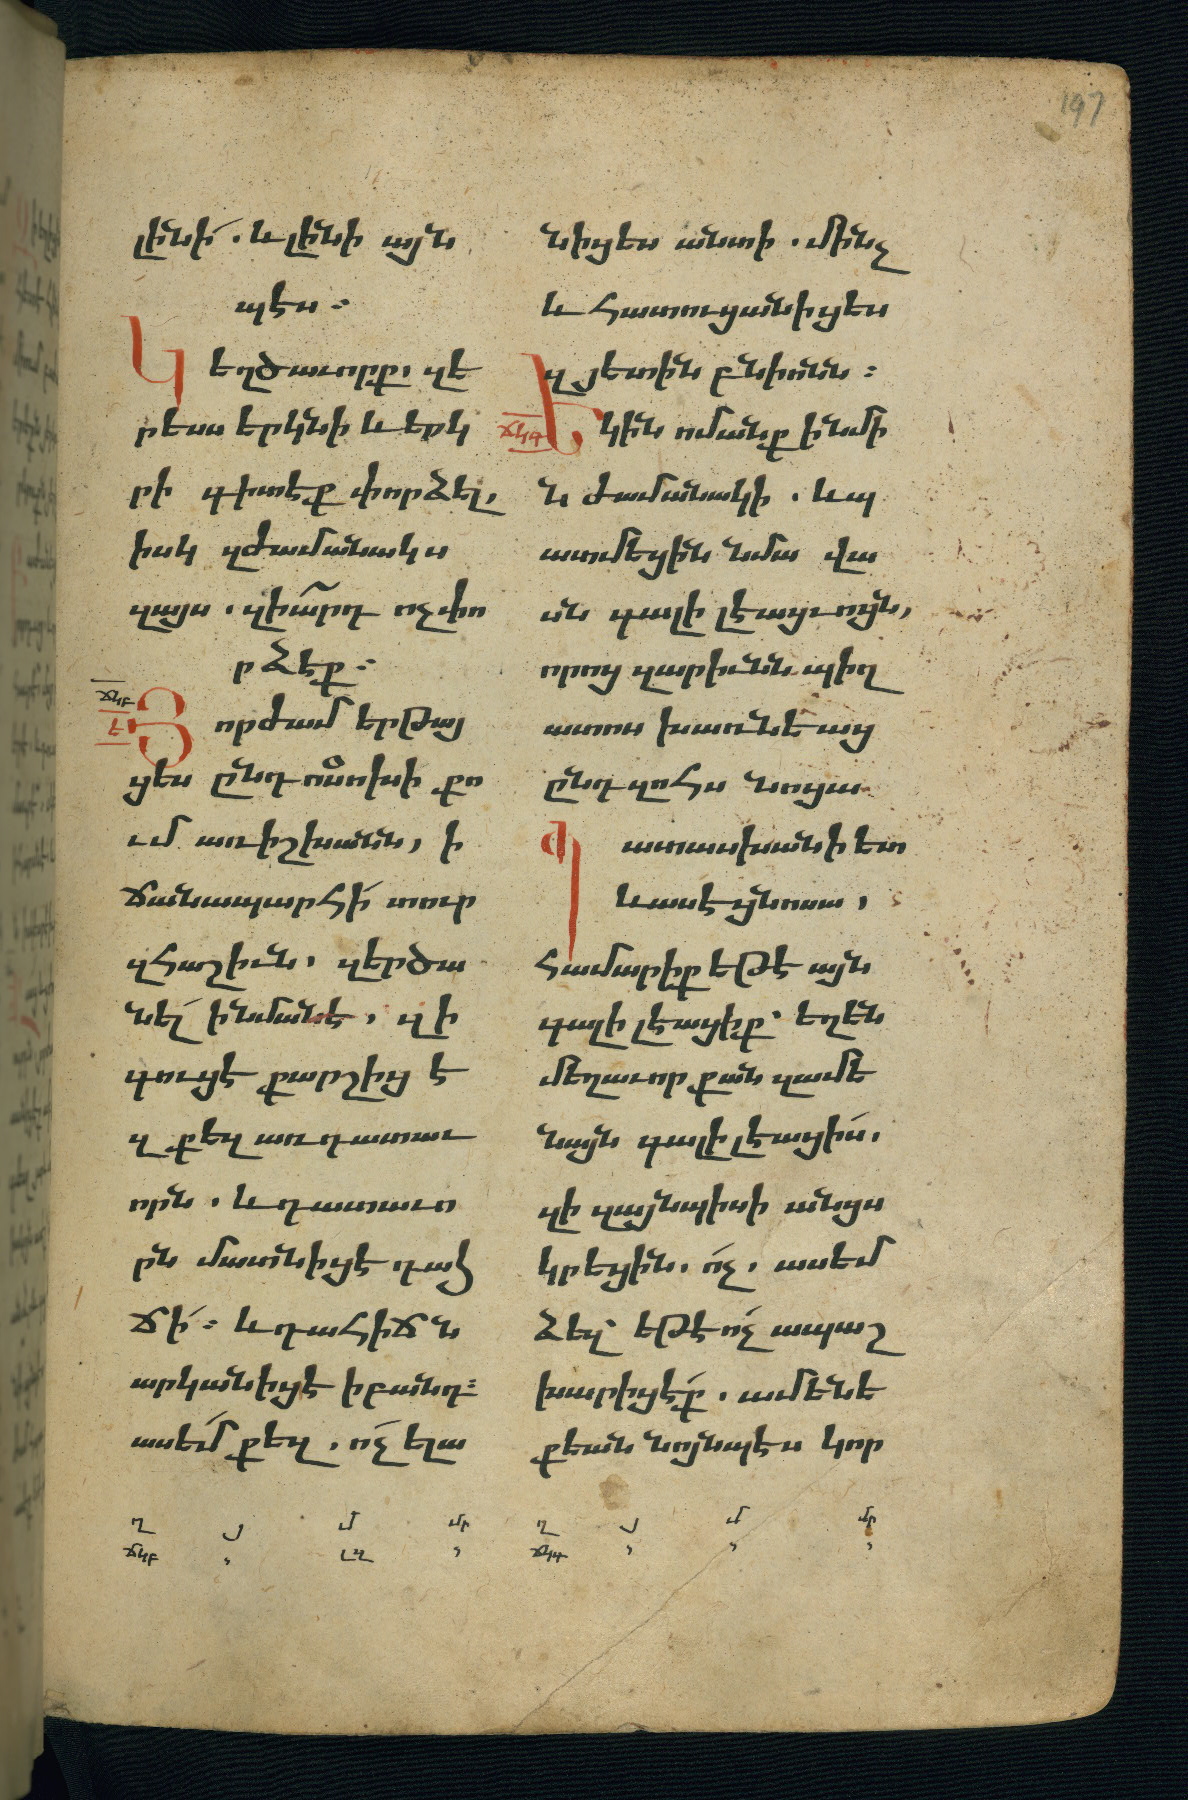 197
լինի՛. և լինի այն
պէս։
Կեղծաւորք, զե
րեսս երկնի և երկ
րի գիտէք փորձել,
իսկ զժամանակս
զայս. զիա՞րդ ոչ փո
րձէք։
ՃԿԲ
Է
Յորժամ երթայ
ցես ընդ ոսոխի քո
ւմ առ իշխանն, ի
ճանապարհի՛ տուր
զհաշիւն, զերծա
նել՛ ի նմանէ, զի
գուցէ քարշիցէ
զքեզ առ դատաւ
որն. և դատաւո
րն մատնիցէ դահ
ճի՛։ և դահիճն
արկանիցէ ի բանդ։
ասե՛մ քեզ. ո՛չ ելա
նիցես անտի. մինչ
և հատուցանիցես
զյետին բնիոնն։
ՃԿԳ
Եկին ոմանք ի նմի
ն ժամանակի. և պ
ատմեցին նմա վա
սն գալիլեացւոցն,
որոց զարիւնն պիղ
ատոս խառնեաց
ընդ զոհս նոցա
Պատասխանի ետ
և ասէ ցնոսա,
համարիք եթէ այն
գալիլեացիք՝ եղեն
մեղաւոր քան զամե
նայն գալիլեացիս,
զի զայնպիսի անցս
կրեցին. ո՛չ, ասեմ
ձեզ՝ եթէ ո՛չ ապաշ
խարիցէք. ամենե
քեան նոյնպէս կոր
Ղ Յ Մ Մր
ՃԿԲ , ԼԶ ,
Ղ Յ Մ Մր
ՃԿԳ , , ,